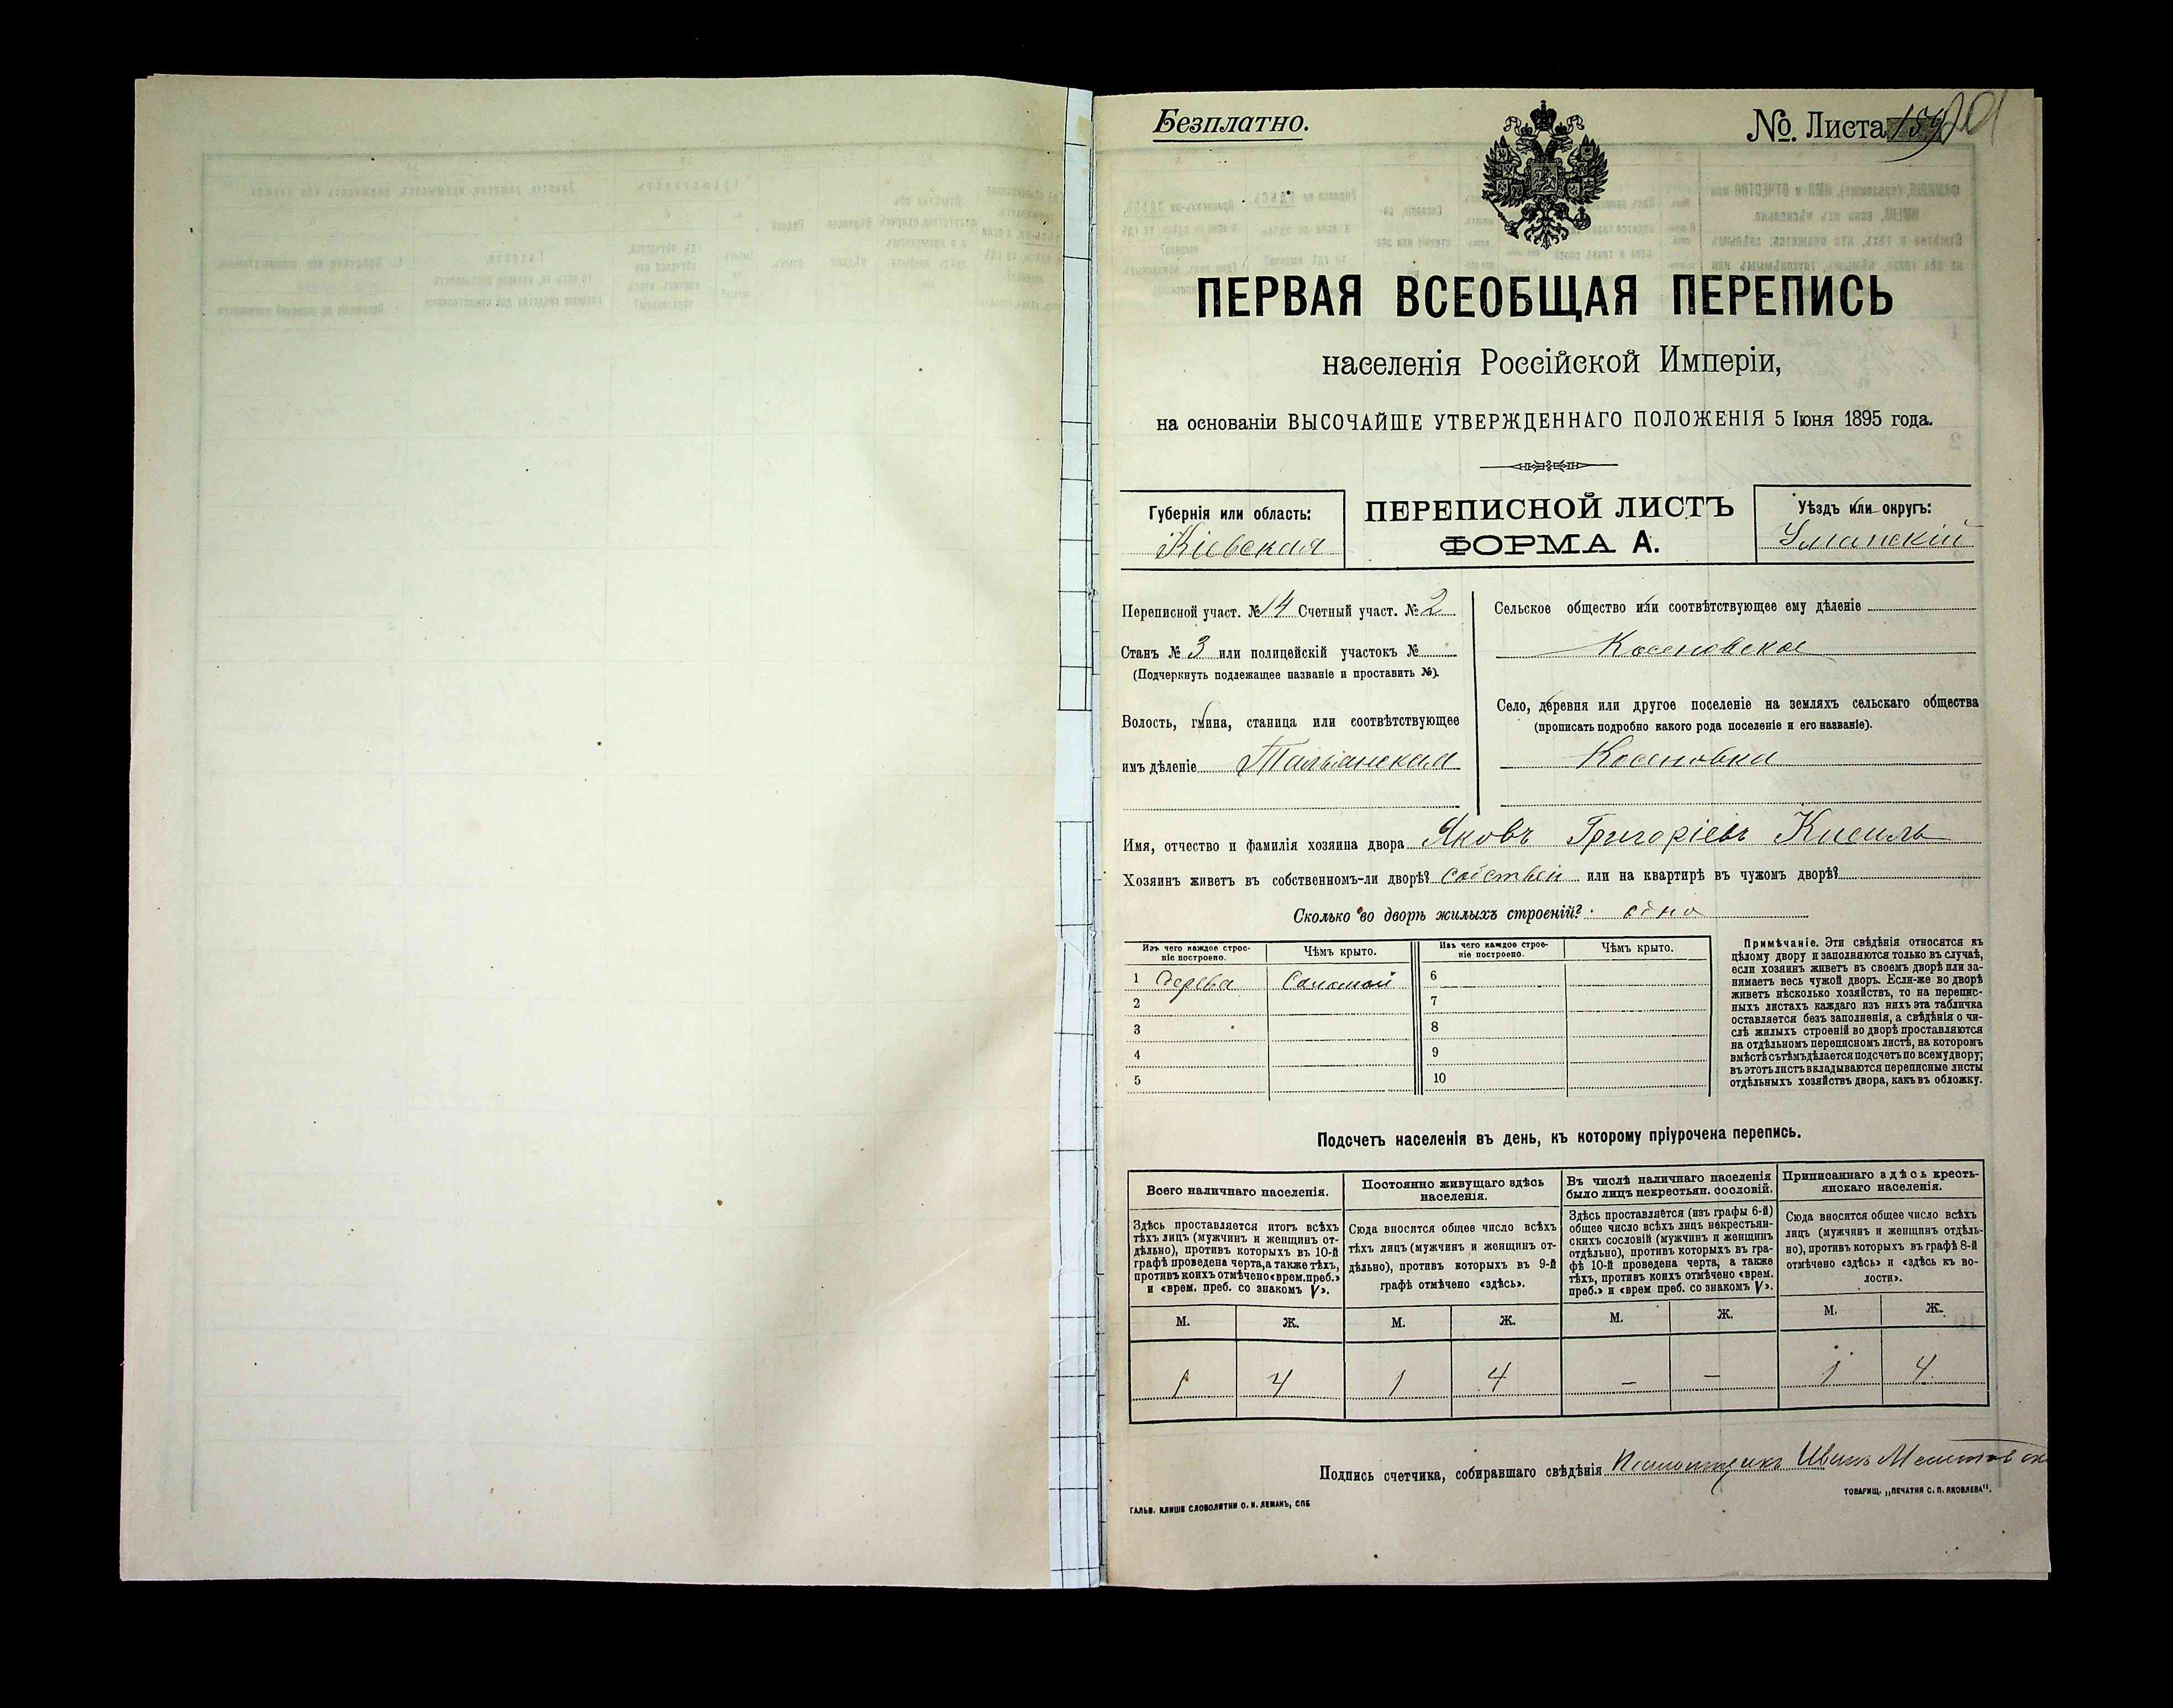 Безплатно.
№. Листа 159
ПЕРВАЯ ВСЕОБЩАЯ ПЕРЕПИСЬ
населенія Россійской Имперіи,
на основаніи ВЫСОЧАЙШЕ УТВЕРЖДЕННАГО ПОЛОЖЕНІЯ 5 Іюня 1895 года.
Губернія или область:
Кіевская
ПЕРЕПИСНОЙ ЛИСТЪ
ФОРМА А.
Уѣздъ или округъ:
Уманскій
Переписной участ. № 14 Счетный участ. № 2
Станъ № 3 или полицейскій участокъ №
(Подчеркнуть подлежащее названіе и проставить №).
Волость, гмина, станица или соотвѣтствующее
имъ дѣленіе Тальянская
Сельское общество или соотвѣтствующее ему дѣленіе
Косеновское
Село, деревня или другое поселеніе на земляхъ сельскаго общества
(прописать подробно какого рода поселеніе и его названіе).
Косеновка
Имя, отчество и фамилія хозяина двора Яковъ Григоріевъ Кисиль
Хозяинъ живетъ въ собственномъ-ли дворѣ? собствен или на квартирѣ въ чужомъ дворѣ?
Сколько во дворѣ жилыхъ строеній? одно
Изъ чего каждое строе-
ніе построено.
Чѣмъ крыто.
Изъ чего каждое строе-
ніе построено.
Чѣмъ крыто.
1 дерева Соломой 6
2 7
3 8
4 9
5 10
Примѣчаніе. Эти свѣдѣнія относятся къ
цѣлому двору и заполняются только въ случаѣ,
если хозяинъ живетъ въ своемъ дворѣ или за-
нимаетъ весь чужой дворъ. Если-же во дворѣ
живетъ нѣсколько хозяйствъ, то на перепис-
ныхъ листахъ каждаго изъ нихъ эта табличка
оставляется безъ заполненія, а свѣдѣнія о чи-
слѣ жилыхъ строеній во дворѣ проставляются
на отдѣльномъ переписномъ листѣ, на которомъ
вмѣстѣ съ тѣмъ дѣлается подсчетъ по всему двору;
въ этотъ листъ вкладываются переписные листы
отдѣльныхъ хозяйствъ двора, какъ въ обложку.
Подсчетъ населенія въ день, къ которому пріурочена перепись.
Всего наличнаго населенія.
Здѣсь проставляется итогъ всѣхъ
тѣхъ лицъ (мужчинъ и женщинъ от-
дѣльно), противъ которыхъ въ 10-й
графѣ проведена черта, а также тѣхъ,
противъ коихъ отмѣчено «врем. преб.»
и «врем. преб. со знакомъ V».
Постоянно живущаго здѣсь
населенія.
Сюда вносится общее число всѣхъ
тѣхъ лицъ (мужчинъ и женщинъ от-
дѣльно), противъ которыхъ въ 9-й
графѣ отмѣчено «здѣсь».
Въ числѣ наличнаго населенія
было лицъ некрестьян. сословій.
Здѣсь проставляется (изъ графы 6-й)
общее число всѣхъ лицъ некрестьян-
скихъ сословій (мужчинъ и женщинъ
отдѣльно), противъ которыхъ въ гра-
фѣ 10-й проведена черта, а также
тѣхъ, противъ коихъ отмѣчено «врем.
преб.» и «врем преб. со знакомъ V».
Приписаннаго здѣсь кресть-
янскаго населенія.
Сюда вносится общее число всѣхъ
лицъ (мужчинъ и женщинъ отдѣль-
но), противъ которыхъ въ графѣ 8-й
отмѣчено «здѣсь» и «здѣсь къ во-
лости».
М. Ж. М. Ж. М. Ж. М. Ж.
1 4 1 4 — — 1 4
Подпись счетчика, собиравшаго свѣдѣнія Иванъ
ГАЛЬВ. КЛИШЕ СЛОВОЛИТНИ О. И. ЛЕМАНЪ, СПБ
ТОВАРИЩ. „ПЕЧАТНЯ С. П. ЯКОВЛЕВА".